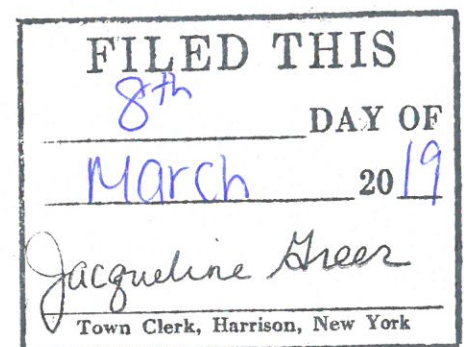 FILED THIS
8th
DAY OF
March 2019
Jacqueline Greer
Town Clerk, Harrison, New York